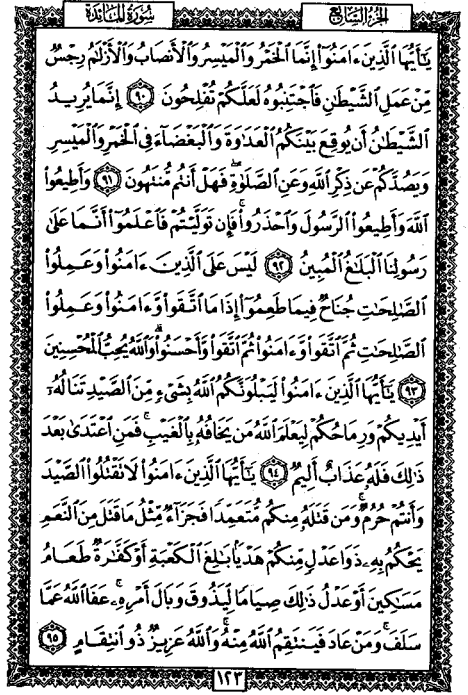 سُورَةُ المَائدة الجزء السابع
يَٰٓأَيُّهَا ٱلَّذِينَ ءَامَنُوٓا۟ إِنَّمَا ٱلْخَمْرُ وَٱلْمَيْسِرُ وَٱلْأَنصَابُ وَٱلْأَزْلَٰمُ رِجْسٌ
مِّنْ عَمَلِ ٱلشَّيْطَٰنِ فَٱجْتَنِبُوهُ لَعَلَّكُمْ تُفْلِحُونَ ٩٠ إِنَّمَا يُرِيدُ
ٱلشَّيْطَٰنُ أَن يُوقِعَ بَيْنَكُمُ ٱلْعَدَٰوَةَ وَٱلْبَغْضَآءَ فِى ٱلْخَمْرِ وَٱلْمَيْسِرِ
وَيَصُدَّكُمْ عَن ذِكْرِ ٱللَّهِ وَعَنِ ٱلصَّلَوٰةِ ۖ فَهَلْ أَنتُم مُّنتَهُونَ ٩١ وَأَطِيعُوا۟
ٱللَّهَ وَأَطِيعُوا۟ ٱلرَّسُولَ وَٱحْذَرُوا۟ ۚ فَإِن تَوَلَّيْتُمْ فَٱعْلَمُوٓا۟ أَنَّمَا عَلَىٰ
رَسُولِنَا ٱلْبَلَٰغُ ٱلْمُبِينُ ٩٢ لَيْسَ عَلَى ٱلَّذِينَ ءَامَنُوا۟ وَعَمِلُوا۟
ٱلصَّٰلِحَٰتِ جُنَاحٌ فِيمَا طَعِمُوٓا۟ إِذَا مَا ٱتَّقَوا۟ وَّءَامَنُوا۟ وَعَمِلُوا۟
ٱلصَّٰلِحَٰتِ ثُمَّ ٱتَّقَوا۟ وَّءَامَنُوا۟ ثُمَّ ٱتَّقَوا۟ وَّأَحْسَنُوا۟ ۗ وَٱللَّهُ يُحِبُّ ٱلْمُحْسِنِينَ
٩٣ يَٰٓأَيُّهَا ٱلَّذِينَ ءَامَنُوا۟ لَيَبْلُوَنَّكُمُ ٱللَّهُ بِشَىْءٍ مِّنَ ٱلصَّيْدِ تَنَالُهُۥٓ
أَيْدِيكُمْ وَرِمَاحُكُمْ لِيَعْلَمَ ٱللَّهُ مَن يَخَافُهُۥ بِٱلْغَيْبِ ۚ فَمَنِ ٱعْتَدَىٰ بَعْدَ
ذَٰلِكَ فَلَهُۥ عَذَابٌ أَلِيمٌ ٩٤ يَٰٓأَيُّهَا ٱلَّذِينَ ءَامَنُوا۟ لَا تَقْتُلُوا۟ ٱلصَّيْدَ
وَأَنتُمْ حُرُمٌ ۚ وَمَن قَتَلَهُۥ مِنكُم مُّتَعَمِّدًا فَجَزَآءٌ مِّثْلُ مَا قَتَلَ مِنَ ٱلنَّعَمِ
يَحْكُمُ بِهِۦ ذَوَا عَدْلٍ مِّنكُمْ هَدْيًۢا بَٰلِغَ ٱلْكَعْبَةِ أَوْ كَفَّٰرَةٌ طَعَامُ
مَسَٰكِينَ أَوْ عَدْلُ ذَٰلِكَ صِيَامًا لِّيَذُوقَ وَبَالَ أَمْرِهِۦ ۗ عَفَا ٱللَّهُ عَمَّا
سَلَفَ ۚ وَمَنْ عَادَ فَيَنتَقِمُ ٱللَّهُ مِنْهُ ۗ وَٱللَّهُ عَزِيزٌ ذُو ٱنتِقَامٍ ٩٥
١٢٣